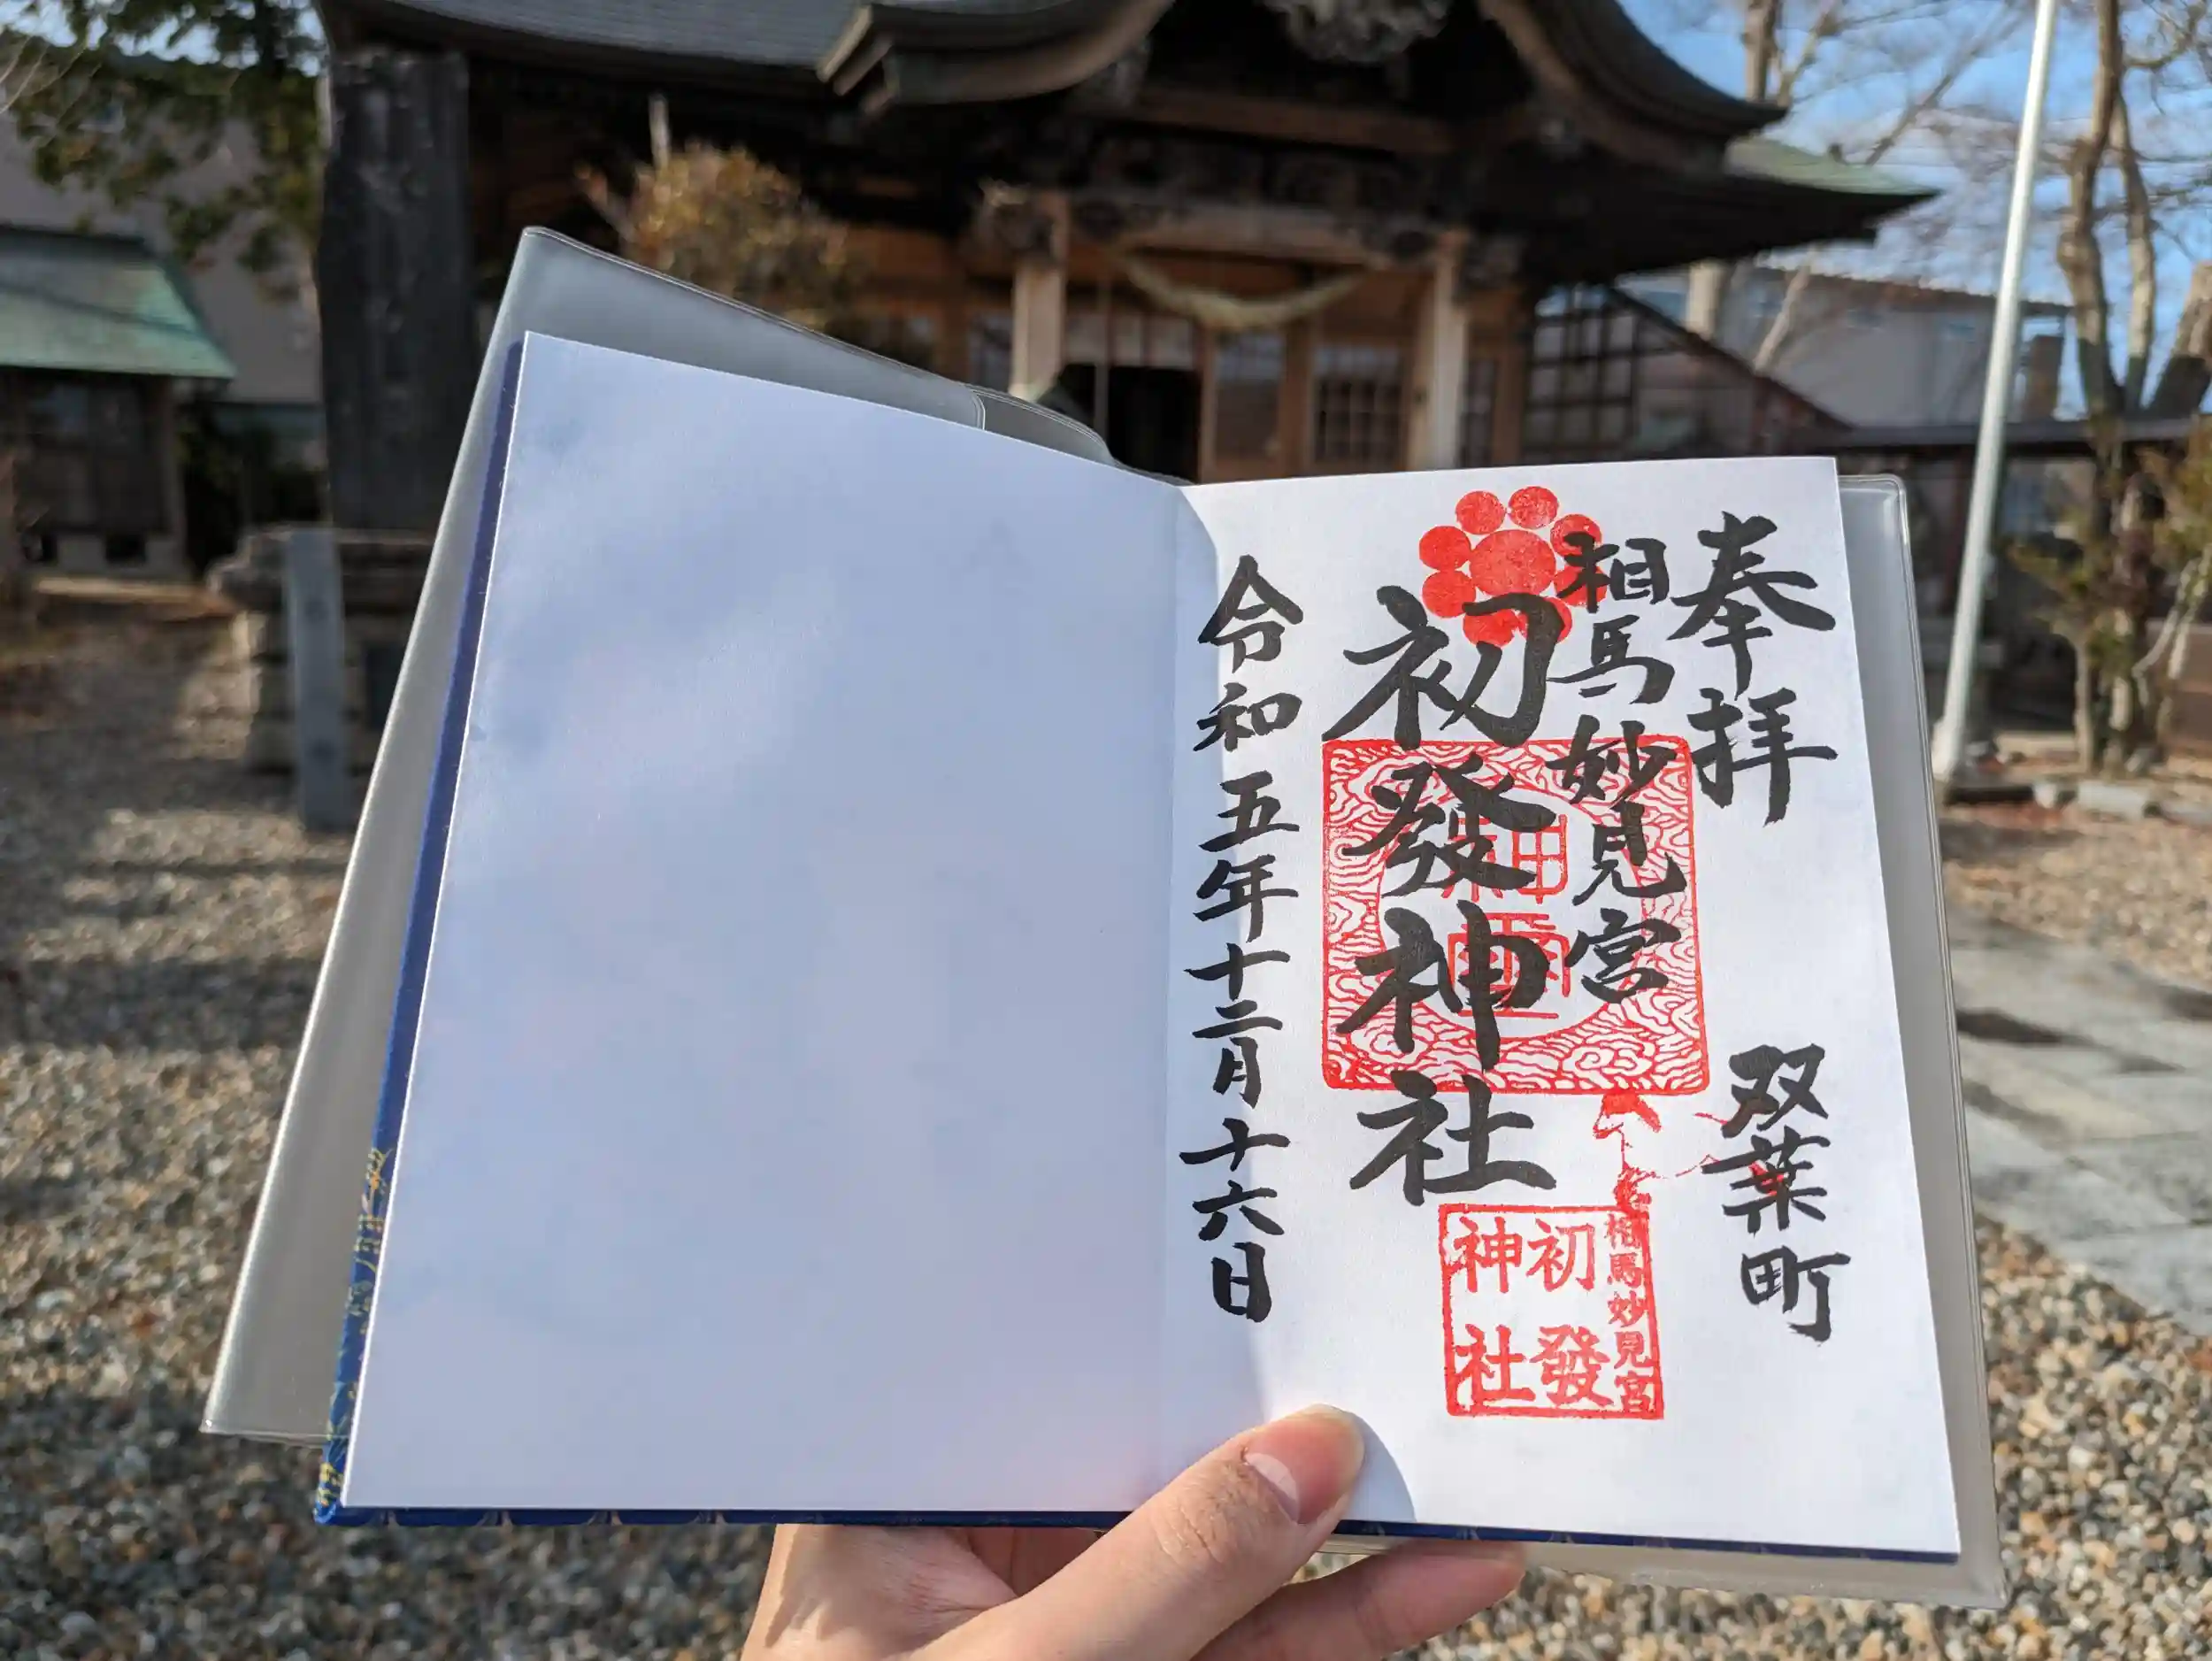 奉拝
双葉町
相馬妙見宮
初發神社
令和五年十二月十六日
相馬妙見宮
初發
神社